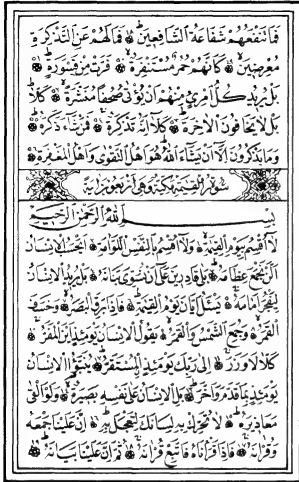 فما تنفعهم شفاعة الشافعين فما لهم عن التذكرة
معرضين كأنهم حمر مستنفرة فرت من قسورة
بل يريد كل امرئ منهم أن يؤتى صحفا منشرة كلا
بل لا يخافون الآخرة كلا إنه تذكرة فمن شاء ذكره
وما يذكرون إلا أن يشاء الله هو أهل التقوى وأهل المغفرة
سورة القيمة مكية وهي أربعون آية
بسم الله الرحمن الرحيم
لا أقسم بيوم القيمة ولا أقسم بالنفس اللوامة أيحسب الإنسان
ألن نجمع عظامه بلى قادرين على أن نسوي بنانه بل يريد الإنسان
ليفجر أمامه يسئل أيان يوم القيمة فإذا برق البصر وخسف
القمر وجمع الشمس والقمر يقول الإنسان يومئذ أين المفر
كلا لا وزر إلى ربك يومئذ المستقر ينبؤا الإنسان
يومئذ بما قدم وأخر بل الإنسان على نفسه بصيرة ولو ألقى
معاذيره لا تحرك به لسانك لتعجل به إن علينا جمعه
وقرآنه فإذا قرأناه فاتبع قرآنه ثم إن علينا بيانه